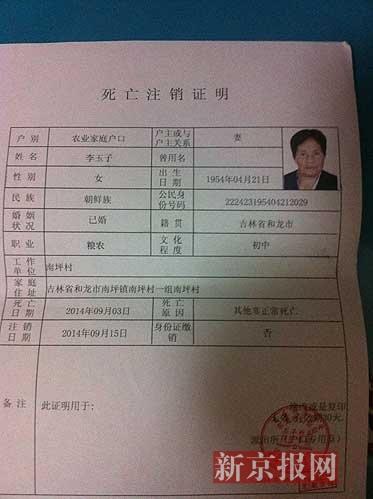 死亡注销证明
户别 农业家庭户口 户主或与户主关系 妻
姓名 李玉子 曾用名
性别 女 出生日期 1954年04月21日
民族 朝鲜族 公民身份号码 222423195404212029
婚姻状况 已婚 籍贯 吉林省和龙市
职业 粮农 文化程度 初中
工作单位 南坪村
家庭住址 吉林省和龙市南坪镇南坪村一组南坪村
死亡日期 2014年09月03日 死亡原因 其他非正常死亡
注销日期 2014年09月15日 身份证缴销 否
备注 此证明用于:
新京报网